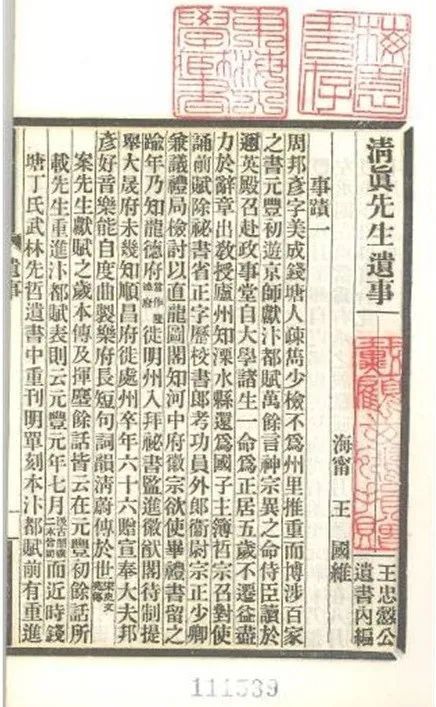 清眞先生遺事
王忠慤公
遺書內編
海甯 王國維
事蹟一
周邦彥字美成錢塘人疎雋少檢不爲州里推重而博涉百家
之書元豐初遊京師獻汴都賦萬餘言神宗異之命侍臣讀於
邇英殿召赴政事堂自大學諸生一命爲正居五歲不遷益盡
力於辭章出敎授廬州知溧水縣還爲國子主簿哲宗召對使
誦前賦除祕書省正字歷校書郎考功員外郎衞尉宗正少卿
兼議禮局檢討以直龍圖閣知河中府徽宗欲使畢禮書留之
踰年乃知龍德府當作隆德府徙明州入拜祕書監進徽猷閣待制提
舉大晟府未幾知順昌府徙處州卒年六十六贈宣奉大夫邦
彥好音樂能自度曲製樂府長短句詞韻清蔚傳於世宋史文苑傳
案先生獻賦之歲本傳及揮麈餘話皆云在元豐初餘話所
載先生重進汴都賦表則云元豐元年七月而近時錢
塘丁氏武林先哲遺書中重刊明單刻本汴都賦前有重進
遺事
一
111539